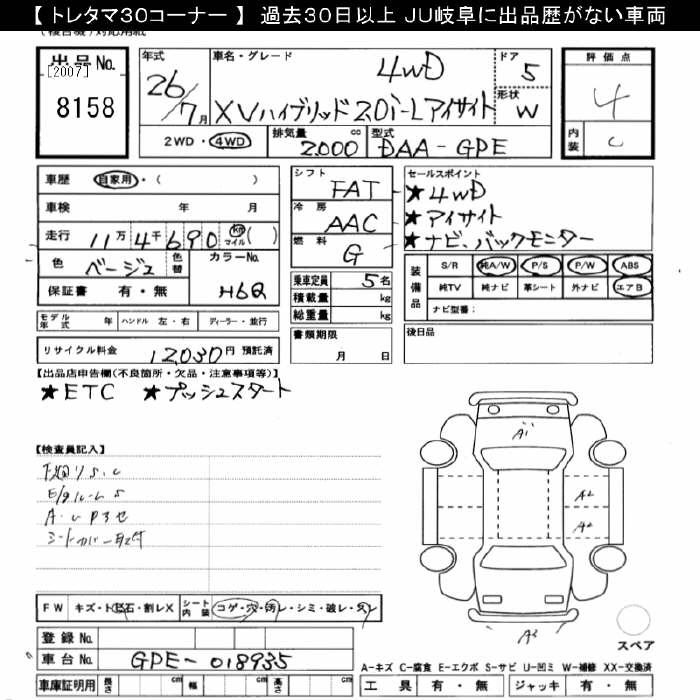 【トレタマ30コーナー】過去30日以上 JU岐阜に出品歴がない車両
出品No.
[2007]
8158
年式
26/7月
車名・グレード
4WD
XVハイブリッド2.0i-Lアイサイト
ドア
5
形状
W
評価点
4
内装
C
2WD・4WD
排気量
2000
cc
型式
DAA-GPE
車歴 自家用・( )
車検 年 月
走行 11万4千690 km マイル( )
色 ベージュ 色替 カラーNo. H6Q
保証書 有・無
シフト FAT
冷房 AAC
燃料 G
乗車定員 5名
積載量 kg
総重量 kg
書類期限
月 日
セールスポイント
★4WD
★アイサイト
★ナビ、バックモニター
装備品
S/R 純A/W P/S P/W ABS
純TV 純ナビ 革シート 外ナビ エアB
ナビ型番:
後日品
モデル年式 年 ハンドル 左・右 ディーラー・並行
リサイクル料金 12,030円 預託済
【出品店申告欄(不良箇所・欠品・注意事項等)】
★ETC ★プッシュスタート
【検査員記入】
シートカバー取付
A1
A2
A2
A2
FW キズ・ト飛石・割レX シート内装 コゲ・穴・汚レ・シミ・破レ・スレ
登録No.
車台No. GPE-018935
車庫証明用 長さ cm 幅 cm 高さ cm
スペア
A-キズ C-腐食 E-エクボ S-サビ U-凹ミ W-補修 XX-交換済
工具 有・無 ジャッキ 有・無